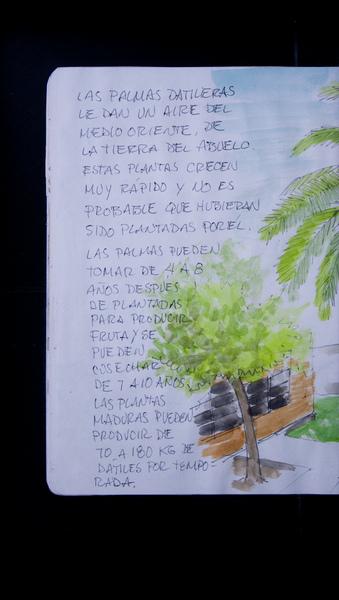 LAS PALMAS DATILERAS
LE DAN UN AIRE DEL
MEDIO ORIENTE, DE
LA TIERRA DEL ABUELO.
ESTAS PLANTAS CRECEN
MUY RÁPIDO Y NO ES
PROBABLE QUE HUBIERAN
SIDO PLANTADAS POR EL.
LAS PALMAS PUEDEN
TOMAR DE 4 A 8
AÑOS DESPUES
DE PLANTADAS
PARA PRODUCIR
FRUTA Y SE
PUEDEN
COSECHAR
DE 7 A 10 AÑOS.
LAS PLANTAS
MADURAS PUEDEN
PRODUCIR DE
70 A 180 KG DE
DATILES POR TEMPO=
RADA.